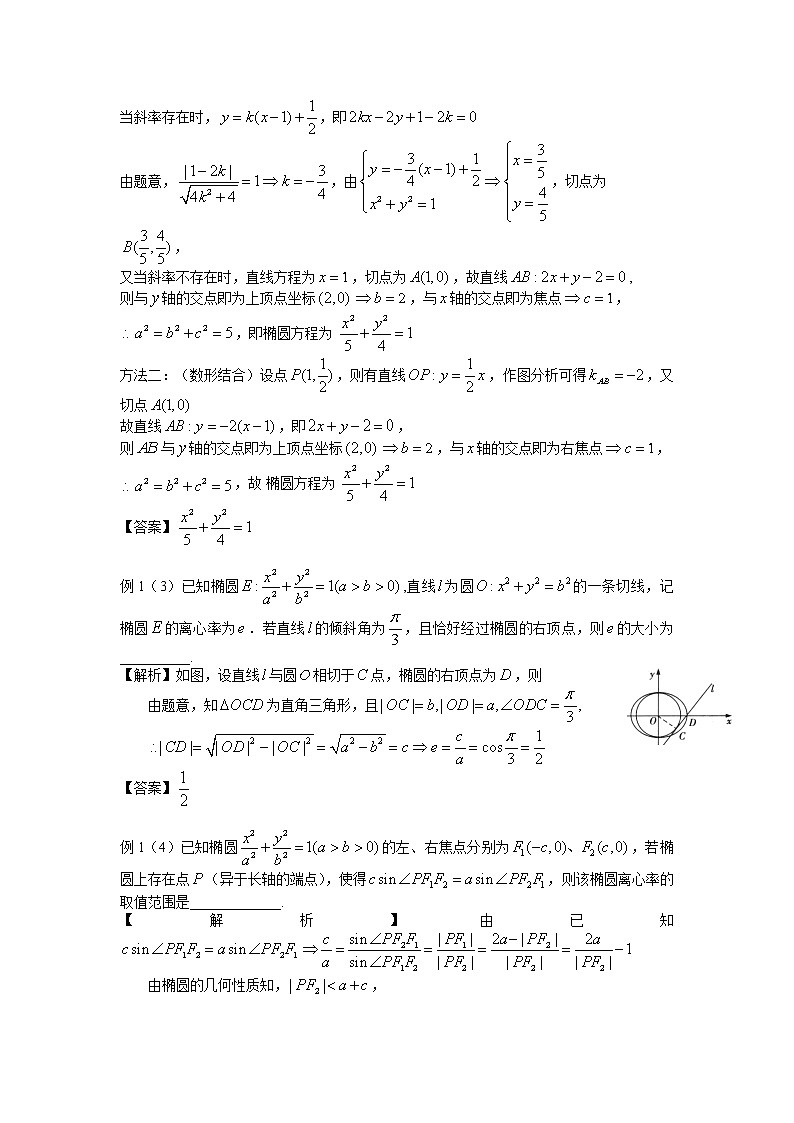 当斜率存在时，y = k(x−1)+1/2，即2kx−2y+1−2k=0
由题意，|1−2k|/√(4k²+4)=1⇒k=−3/4，由{y=−3/4(x−1)+1/2, x²+y²=1⇒{x=3/5, y=4/5，切点为
B(3/5,4/5)，
又当斜率不存在时，直线方程为x=1，切点为A(1,0)，故直线AB:2x+y−2=0，
则与y轴的交点即为上顶点坐标(2,0)⇒b=2，与x轴的交点即为焦点⇒c=1，
∴a²=b²+c²=5，即椭圆方程为 x²/5+y²/4=1
方法二：（数形结合）设点P(1,1/2)，则有直线OP:y=1/2x，作图分析可得k_AB=−2，又
切点A(1,0)
故直线AB:y=−2(x−1)，即2x+y−2=0，
则AB与y轴的交点即为上顶点坐标(2,0)⇒b=2，与x轴的交点即为右焦点⇒c=1，
∴a²=b²+c²=5，故 椭圆方程为 x²/5+y²/4=1
【答案】x²/5+y²/4=1
例1（3）已知椭圆E:x²/a²+y²/b²=1(a>b>0),直线l为圆O:x²+y²=b²的一条切线，记
椭圆E的离心率为e．若直线l的倾斜角为π/3，且恰好经过椭圆的右顶点，则e的大小为
__________.
【解析】如图，设直线l与圆O相切于C点，椭圆的右顶点为D，则
由题意，知ΔOCD为直角三角形，且|OC|=b,|OD|=a,∠ODC=π/3,
∴|CD|=√(|OD|²−|OC|²)=√(a²−b²)=c⇒e=c/a=cosπ/3=1/2
y
l
O
D
x
C
【答案】1/2
例1（4）已知椭圆x²/a²+y²/b²=1(a>b>0)的左、右焦点分别为F₁(−c,0)、F₂(c,0)，若椭
圆上存在点P（异于长轴的端点），使得c sin∠PF₁F₂=a sin∠PF₂F₁，则该椭圆离心率的
取值范围是_____________.
【解析】由已知
c sin∠PF₁F₂=a sin∠PF₂F₁⇒c/a=sin∠PF₂F₁/sin∠PF₁F₂=|PF₁|/|PF₂|=(2a−|PF₂|)/|PF₂|=2a/|PF₂|−1
由椭圆的几何性质知，|PF₂|<a+c，